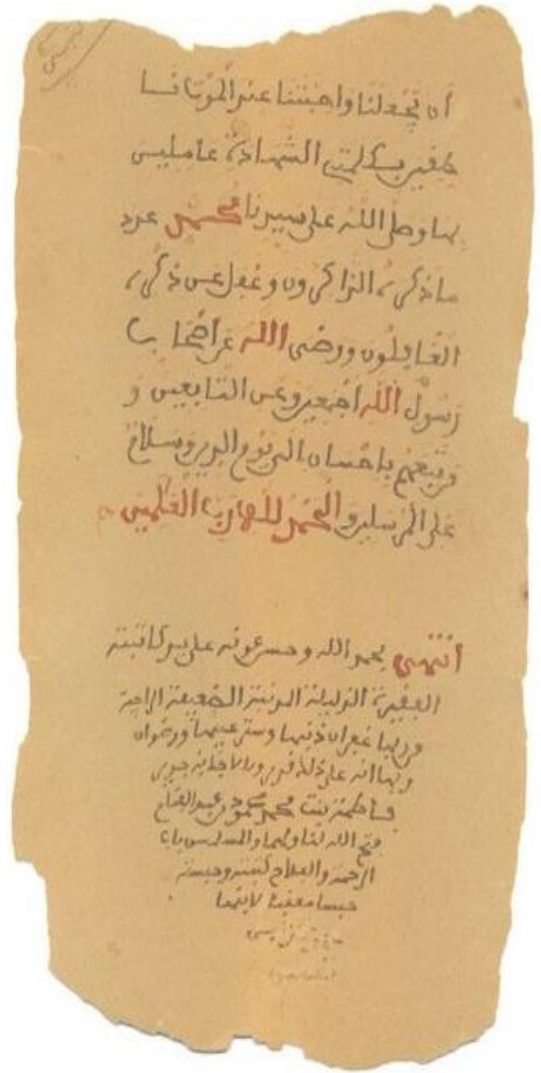 أن تجعلنا واحبتنا عند الموت نا
طقين بكلمتي الشهادة عالمين
بها وصلى الله على سيدنا محمد عدد
ما ذكره الذاكرون وغفل عن ذكره
الغافلون ورضي الله عن أصحاب
رسول الله اجمعين وعن التابعين و
من تبعهم بإحسان الى يوم الدين وسلام
على المرسلين والحمد لله رب العلمين
انتهى بحمد الله وحسن عونه على يد كاتبته
الفقيرة الذليلة المذنبة الضعيفة الراجية
من ربها غفران ذنبها وستر عيبها ورضوان
ربها انه على ذلك قدير وبالاجابة جدير
فاطمة بنت محمد محمود بن عبد الفتاح
فتح الله لنا ولها وللمسلمين باب
الرحمة والفلاح كتبته وحبسته
حبسا معقبا لابنتها